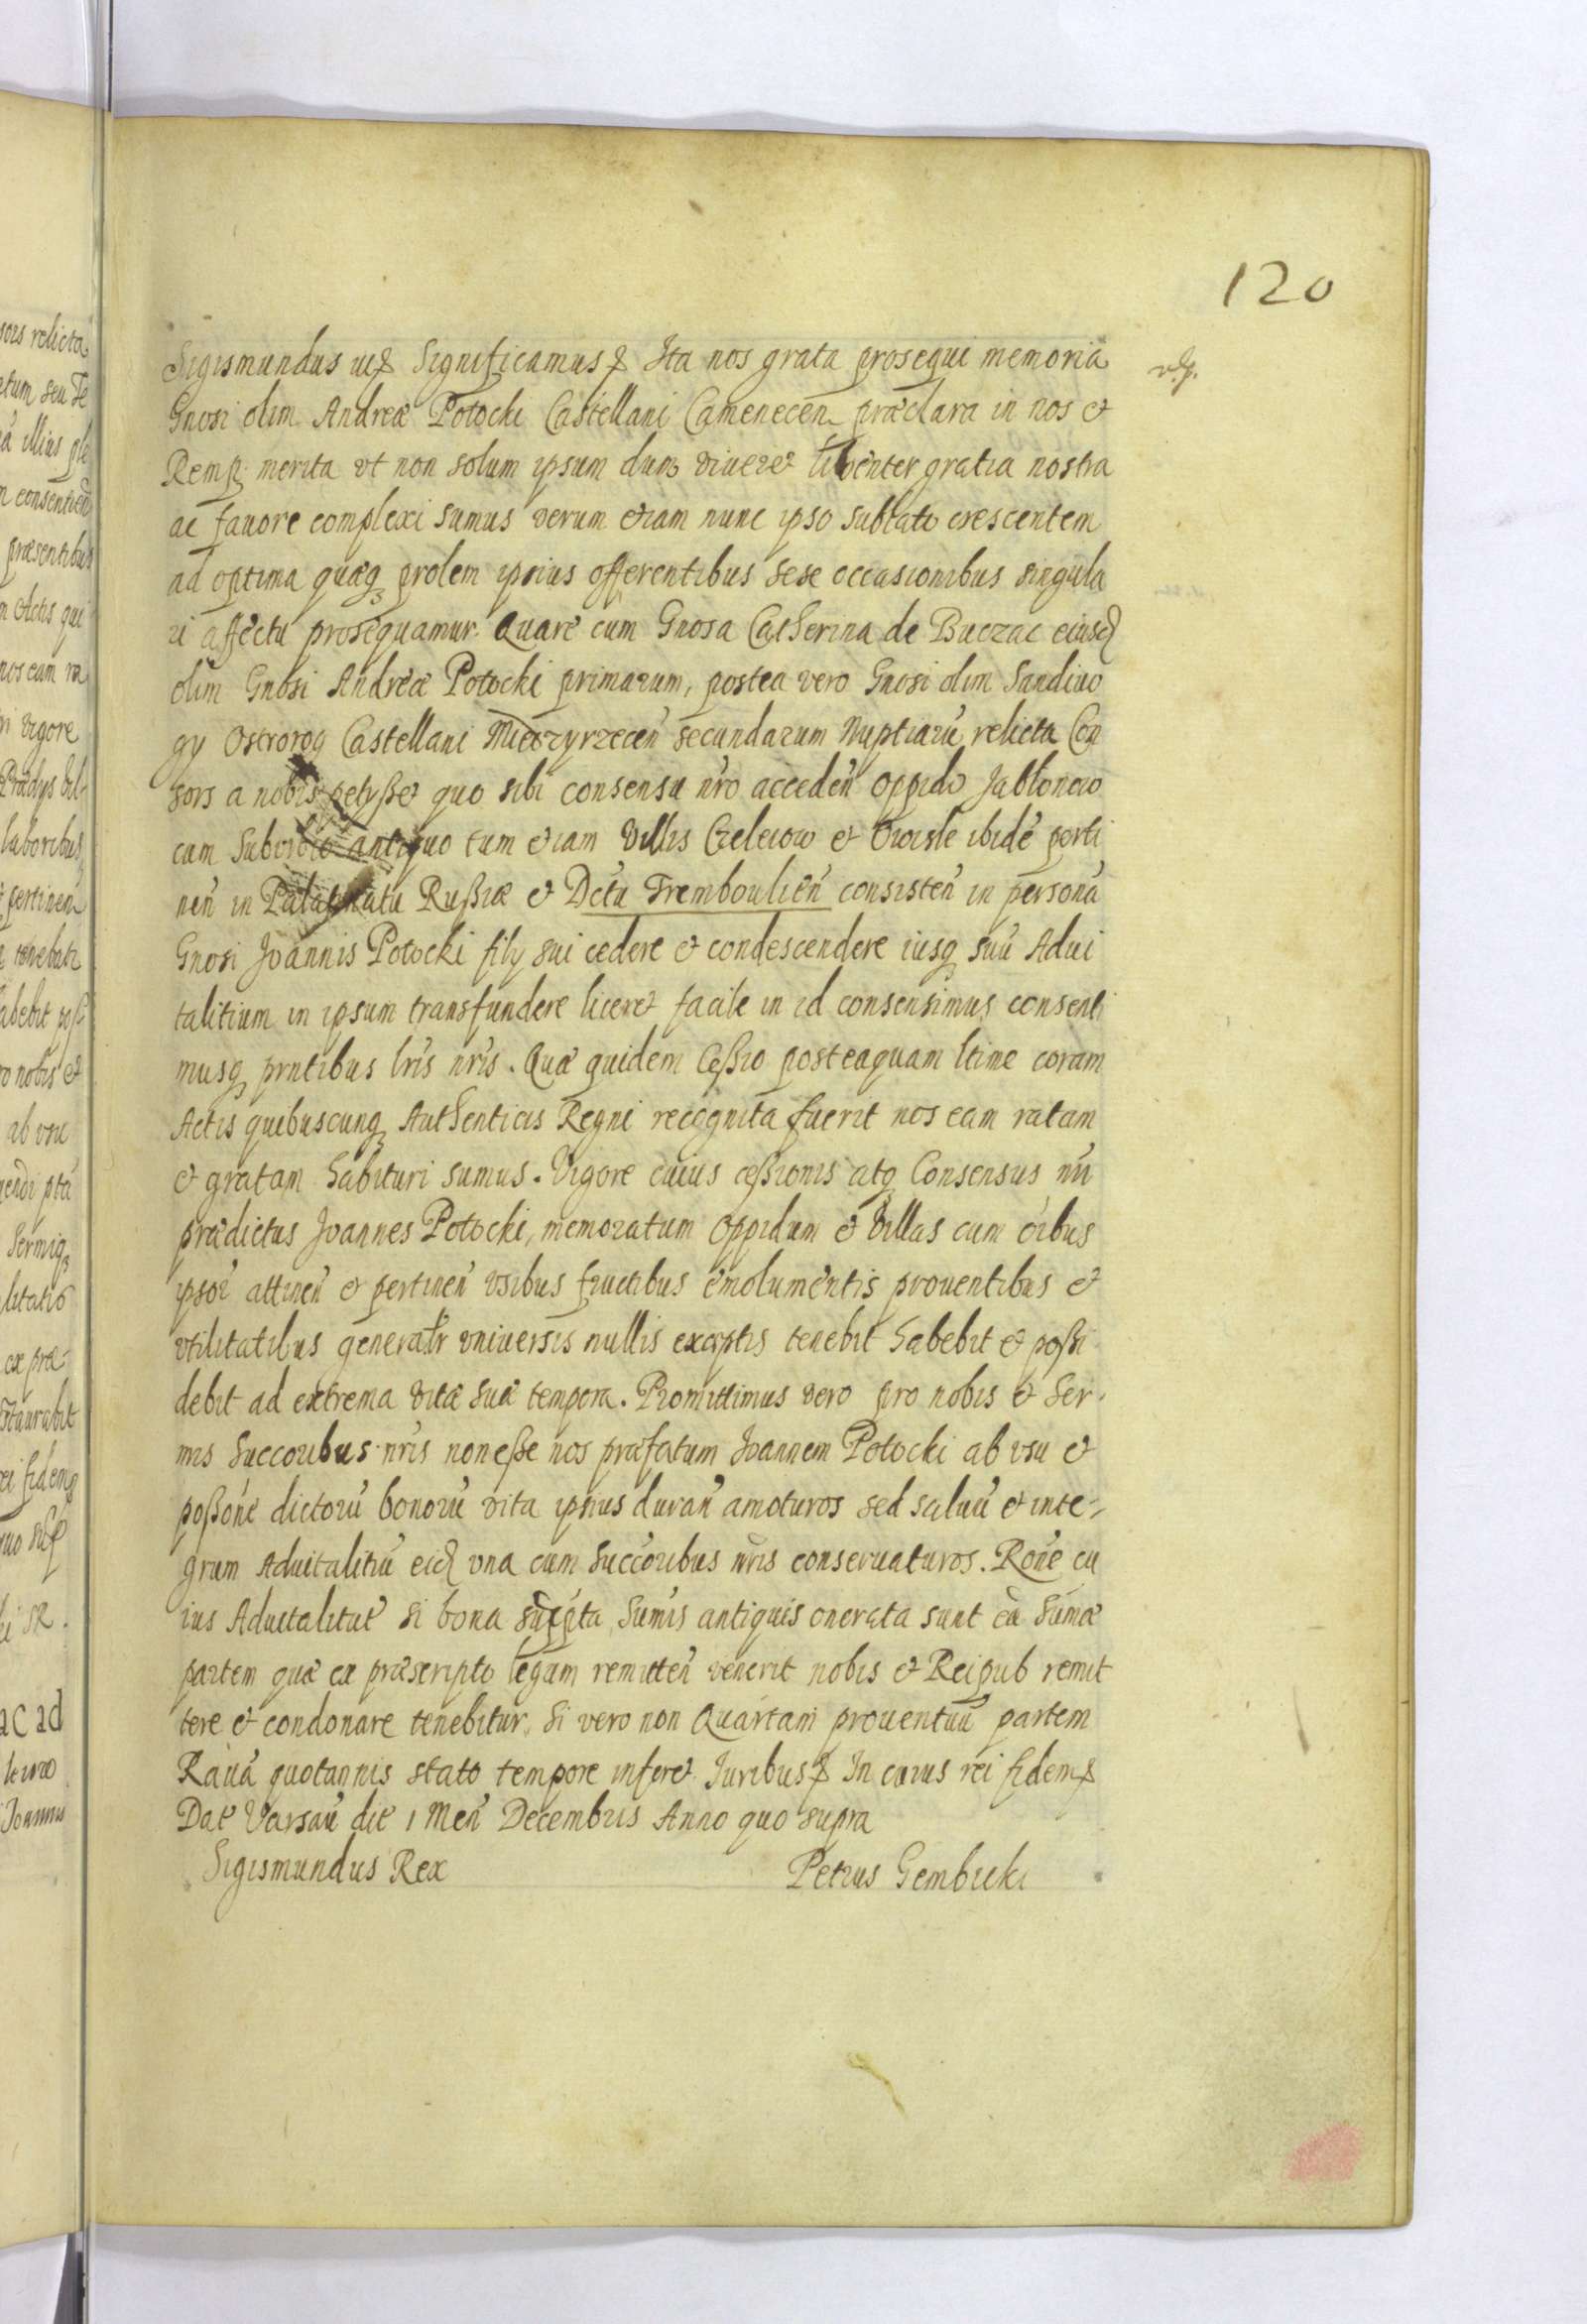 120
Sigismundus III etc Significamus etc Ita nos grata prosequi memoria
Gnosi olim Andreæ Potocki Castellani Camenecen præclara in nos et
Remp: merita vt non solum ipsum dum viueret libenter gratia nostra
ac fauore complexi sumus verum etiam nunc ipso sublato crescentem
ad optima quæq prolem ipsius offerentibus sese occasionibus singula
ri affectu prosequamur. Quare cum Gnosa Catherina de Buczac eiusd
olim Gnosi Andreæ Potocki primarum, postea vero Gnosi olim Sandiuo
gy Ostrorog Castellani Miedzyrzecen secundarum Nuptiarũ relicta Con
sors a nobis petysset quo sibi consensu nr̃o acceden̄ oppido Jabłonow
cum Suburbio antiquo tum etiam Villis Czeleiow et Owisle ibidē perti
nen̄ in Palatinatu Russiæ et Dctũ Tremboulien̄ consisten̄ in personã
Gnosi Joannis Potocki fily sui cedere et condescendere iusq suũ Adui
talitium in ipsum transfundere liceret facile in id consensimus consenti
musq prntibus lris nris. Quæ quidem Cessio posteaquam ltime coram
Actis quibuscunq Authenticis Regni recognita fuerit nos eam ratam
et gratam habituri sumus. Vigore cuius cessionis atq Consensus nri
prædictus Joannes Potocki, memoratum oppidum et Villas cum oibus
ipsor attinen̄ et pertinen̄ vsibus fructibus emolumentis prouentibus et
vtilitatibus generalr vniuersis nullis exceptis tenebit habebit et possi
debit ad extrema vitæ suæ tempora. Promittimus vero pro nobis et Ser-
mis Succoribus nris non esse nos præfatum Joannem Potocki ab vsu et
possone dictorũ bonorũ vita ipsius duran̄ amoturos sed saluũ et inte-
grum Aduitalitiũ eid vna cum Succoribus nris conseruaturos. Rone cu
ius Aduitalitat si bona suppta Sumis antiquis onerata sunt eã Sumæ
partem quæ ex præscripto legum remitten̄ venerit nobis et Reipub remit
tere et condonare tenebitur, Si vero non Quartam prouentuũ partem
Rauã quotannis stato tempore inferet Juribus etc In cuius rei fidem etc
Dat Varsau die 1 Men̄ Decembris Anno quo supra
Sigismundus Rex Petrus Gembicki